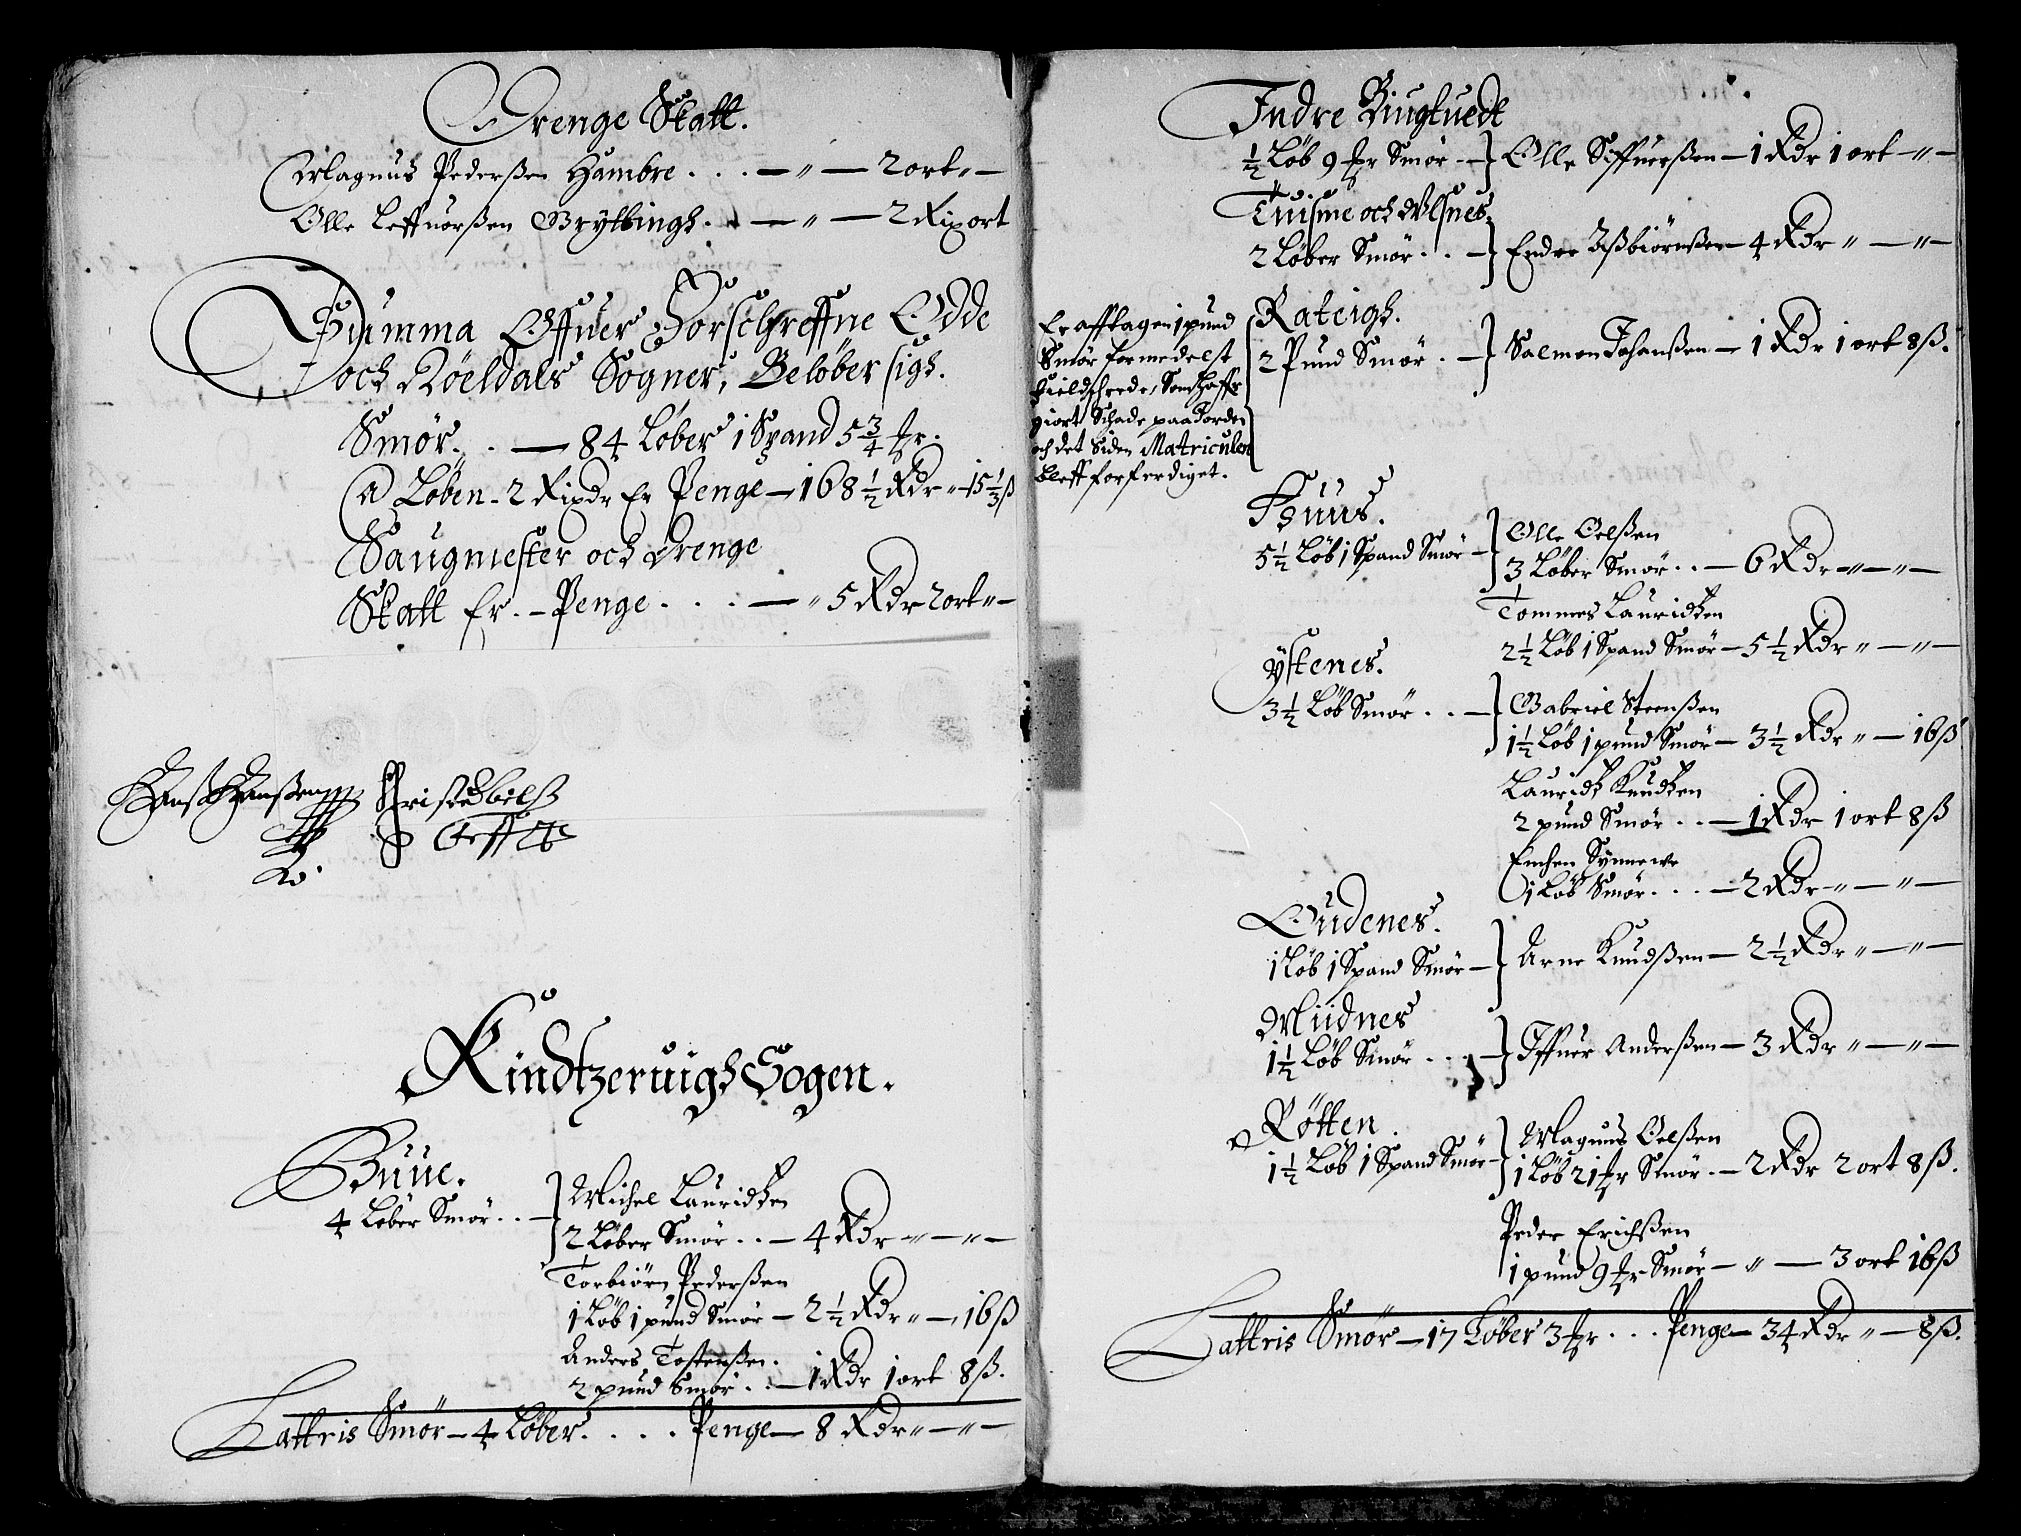 Drenge Skatt.
Magnus Pederßen Hambre . . . — " — 2 ort " —
Olle Leffuorßen Gryttingh . . — " — 2 Rix ort
Summa Offuer Forschreffne Odde
och Röeldals Sogner, Beløber sigh.
Smör. . — 84 Løber 1 Spand 5 3/4 fr.
A Løben - 2 Rixdr Er Penge — 168 1/2 Rdr " — 15 1/3 ß
Saugmester och Drenge
Skatt Er. — Penge . . . — " 5 Rdr 2 ort " —
Hans Hanßen
Kindtzeruigh Sogen.
Büüe.
4 Løber Smör . . —
Michel Lauridtzen
2 Løber Smör . . — 4 Rdr — " — " —
Torbiörn Pederßen
1 Løb 1 pund Smör — 2 1/2 Rdr " — 16 ß
Anders Tostenßen.
2 pund Smör . . — 1 Rdr 1 ort 8 ß.
Lattris Smör — 4 Løber . . . . Penge — 8 Rdr " — " —
Indre Biugtuedt
1/2 Løb 9 fr Smör — Olle Siffuerßen — 1 Rdr 1 ort — " —
Tuisme och Alsnes
2 Løber Smör . . — Ender Aßbiörnßen — 4 Rdr " — " —
Rateigh.
2 Pund Smör . — Salmon Johanßen — 1 Rdr 1 ort 8 ß.
Er afftagen 1 pund
Smör formedelst
Fieldschrede, Som haffr
giort Schade paa Jorden
och det Siden Matriculen
bleff forferdiget.
Huus.
5 1/2 Løb 1 Spand Smör —
Olle Oelßen
3 Løber Smör . . — 6 Rdr — " — " —
Tommes Lauridtzen
2 1/2 Løb 1 Spand Smör — 5 1/2 Rdr " — " —
Ystenes.
3 1/2 Løb Smör . . —
Gabriel Steenßen
1 1/2 Løb 1 pund Smör — 3 1/2 Rdr " — 16 ß
Lauridtz Knudtzen
2 pund Smör . . — 1 Rdr 1 ort 8 ß
Enchen Synnewe
1 Løb Smör . . . — 2 Rdr — " — " —
Oudenes.
1 Løb 1 Spand Smör — Arne Knudßen — 2 1/2 Rdr " — " —
Miidnes
1 1/2 Løb Smör . . . — Iffuer Anderßen — 3 Rdr " — " —
Røtten.
1 1/2 Løb 1 Spand Smör —
Magnus Oelßen
1 Løb 21 fr Smör . — 2 Rdr 2 ort 8 ß.
Peder Erichßen
1 pund 9 fr Smör — " — 3 ort 16 ß
Lattris Smör — 17 Løber 3 fr . . . Penge — 34 Rdr " — 8 ß.